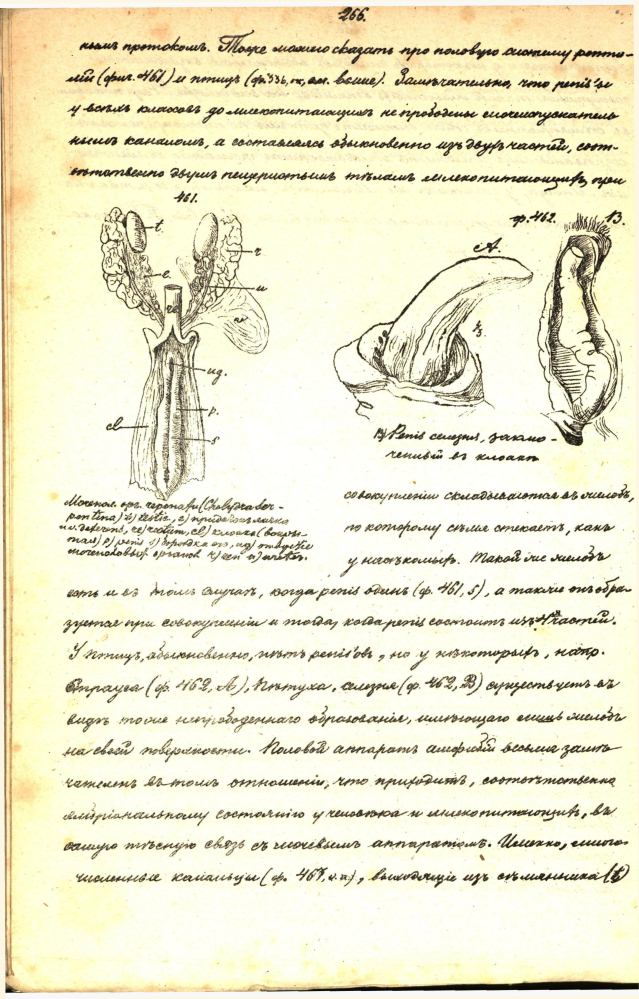 266.
нымъ протокомъ. Тоже можно сказать про половую систему репти-
лій (фиг. 461) и птицъ (ф. 336, см. выше). Замѣчательно, что penis'ы
у всѣхъ классовъ до млекопитающихъ не прободены мочеиспускатель
нымъ каналомъ, а составляясь обыкновенно изъ двухъ частей, соот-
вѣтственно двумъ пещеристымъ тѣламъ млекопитающихъ, при
461.
t.
e.
r.
u
v
ug.
p.
s
cl
ф. 462.
A.
⅓.
B.
B) Penis селезня, заклю-
ченный въ клоакѣ
Мочепол. орг. черепахи (Chelydra ser-
pentina) t) testis, e) придатокъ яичка
v. deferens, re) rectum, cl) клоака (вскры-
тая) p) penis s) бороздка его, ug) отверстіе
мочеполовыхъ органовъ r) ren u) ureter.
совокупленіи складываются въ желобъ,
по которому сѣмя стекаетъ, какъ
у насѣкомыхъ. Такой же желобъ
есть и въ томъ случаѣ, когда penis одинъ (ф. 461, s), а также онъ обра-
зуется при совокупленіи и тогда, когда penis состоитъ изъ частей.
У птицъ, обыкновенно, нѣтъ penis'овъ, но у нѣкоторыхъ, напр.
Страуса (ф. 462, A), Пѣтуха, селезня (ф. 462, B) существуетъ въ
видѣ тоже непрободеннаго образованія, имѣющаго лишь желобъ
на своей поверхности. Половой аппаратъ амфибій весьма замѣ
чателенъ въ томъ отношеніи, что приходитъ, соотвѣтственно
эмбріональному состоянію у человѣка и млекопитающихъ, въ
самую тѣсную связь съ мочевымъ аппаратомъ. Именно, много-
численные канальцы (ф. выходящіе изъ сѣмянника (t)